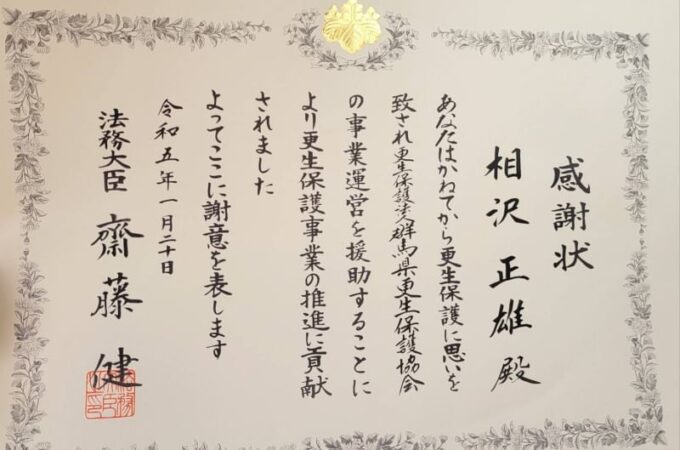 感謝状
相沢正雄殿
あなたはかねてから更生保護に思いを
致され更生保護法人群馬県更生保護協会
の事業運営を援助することに
より更生保護事業の推進に貢献
されました
よってここに謝意を表します
令和五年一月二十日
法務大臣 齋藤健